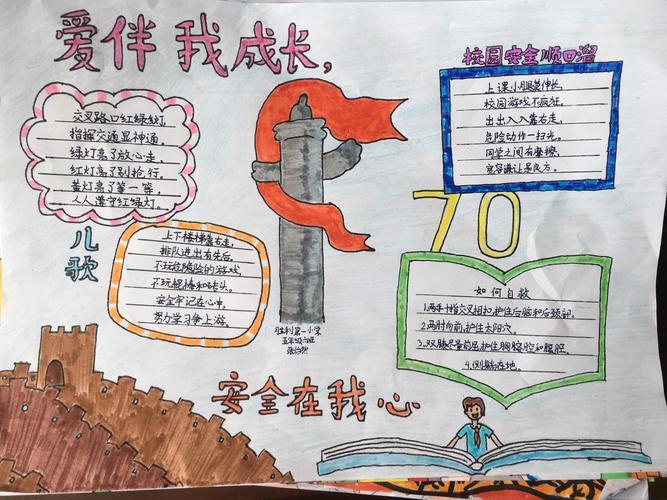 爱伴我成长，
交叉路口红绿灯，
指挥交通显神通，
绿灯亮了放心走，
红灯亮了别抢行，
黄灯亮了等一等，
人人遵守红绿灯。
儿歌
上下楼梯靠右走，
排队进出有先后，
不玩危险的游戏
不玩棍棒和砖头，
安全牢记在心中，
努力学习争上游。
胜利第一小学
五年级六班
校园安全顺口溜
校园游戏不疯狂。
出出入入靠右走，
危险动作一扫光。
同学之间有摩擦，
宽容谦让是良方。
70
如何自救
1.两手十指交叉相扣护住后脑和后颈部。
2.两肘向前,护住太阳穴。
3.双膝尽量前屈护住胸腔和腹腔。
4.侧躺在地。
安全在我心